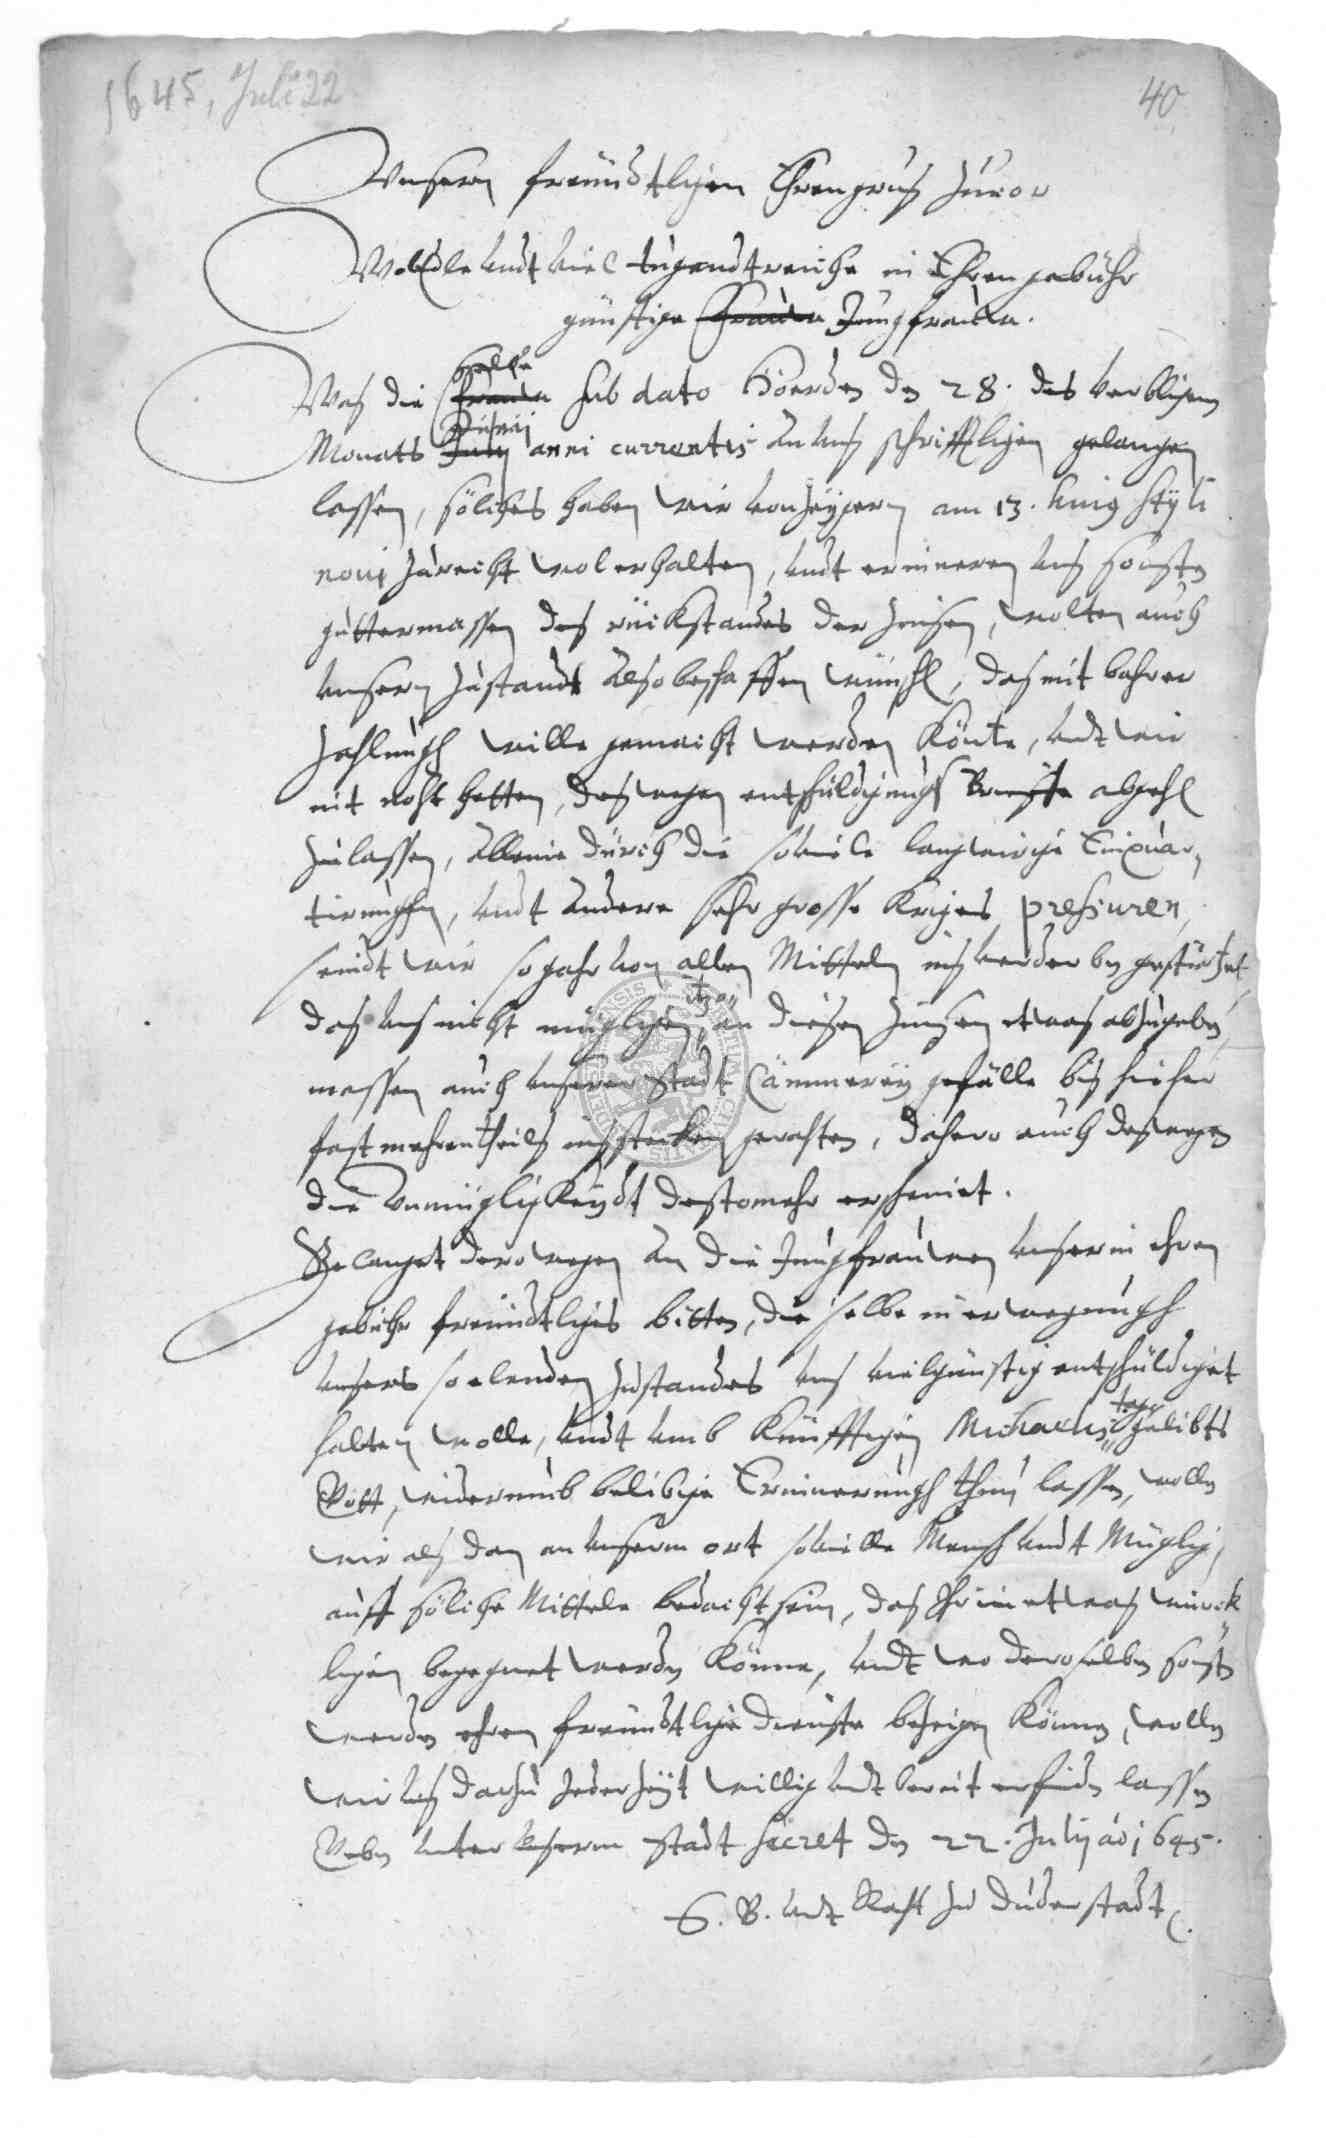 1645, Juli 22
40
Unsern freündtlichen Ehrengrus zuvor
WolEdle undt viel tugendtreiche in Ehren gebühr
günstige Frauw Jungfrauw.
Was die Frauw selbe sub dato Hoerden den 28. des verblichenen
Monats July Junij anni currentis an uns schrifftlichen gelangen
lassen, sölches haben wir vorzeigern am 13. huius styli
novi zurecht wol erhalten, undt erinneren uns sonsten
guttermassen des rückstandes der Zinsen, wolten auch
unsern Zustandt also beschaffen wünschen, das mit bahrer
zahlungh wille gemacht werden könte, undt wir
nit noht hetten, deswegen entschuldigungs brieffe abgehen
zulassen, Alleine durch die soviele langwirige Einquar„
tirunghen, undt andere sehr grosse Krieges pressuren,
seindt wir so gahr von allen Mitteln ins verderben gestürtzet
das uns nicht müglichen, itzo an diesen Zinsen etwas abzugeben,
massen auch unserer Stadt Cämmerey gefälle bis hieher
fast mehrentheils ins stecken gerahten, dahero auch deswegen
die unmüglichkeydt destomehr erscheinet.
Gelanget derowegen an die Jungfrauwen unser in ehren
gebühr freündtliches bitten, die selbe in erwegungh
unsers so elenden Zustandes uns vielgünstig entschüldiget
halten wolle, undt umb künfftigen Michaelis tage geliebts
Gott, widerumb beliebige Erinnerungh thun lassen, wollen
wir als dan an unserm ort soviell Mensch undt Müglich,
auff sölche Mittele bedacht sein, das Ihr in etwas würck„
lichen begegnet werden könne, undt wo deroselben sonsten
werden ehren freundtliche dienste bezeigen können, wollen
wir uns darzu jederzeyt willig undt bereit erfinden lassen
Geben unter unserm Stadt Secret den 22. July ao 1645.
E. B. undt Raht zu Duderstadt.